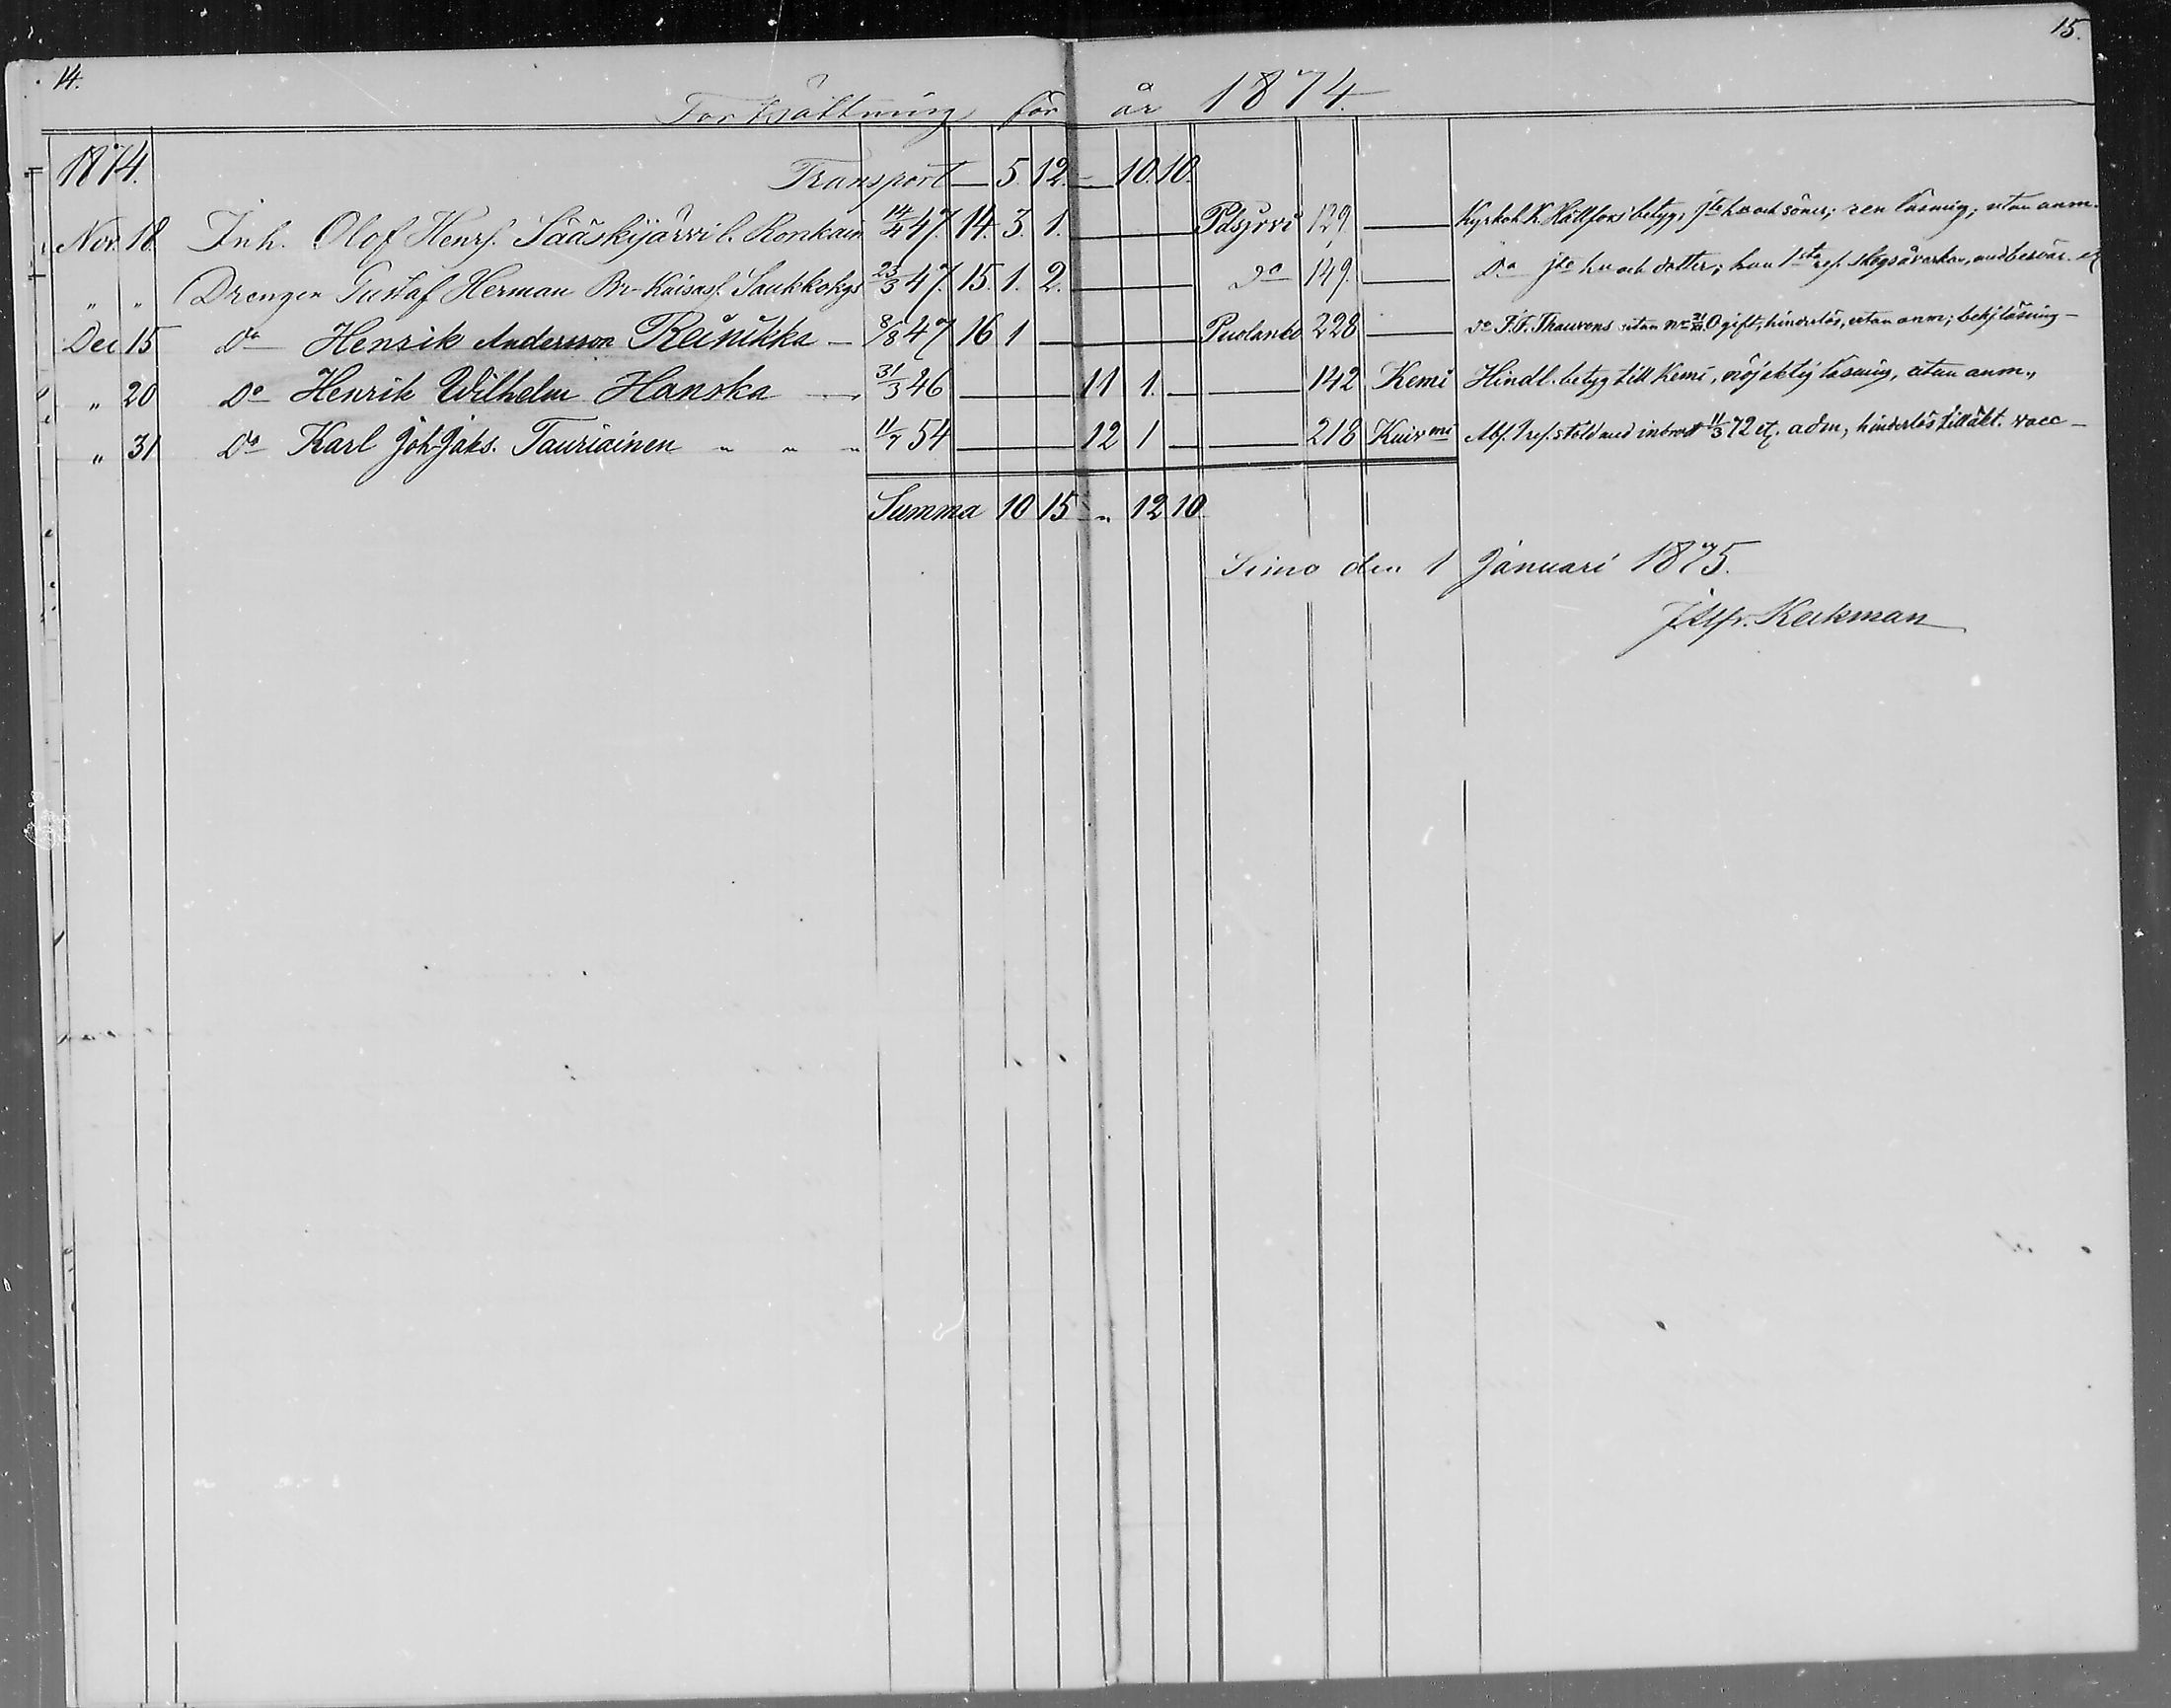 14.
15.
Fortsättning för år 1874.
1874. Transport — 5. 12. — 10. 10.
Nov. 18 Inh. Olof Henrs. Sääskijärvi l. Ronkain 14/4 47. 14. 3. 1. — Pdsjrvi 129. — Kyrkoh. K. betyg, jte h:u och söner; ren läsning, utan anm.
" " Drengen Gustaf Herman Saukkokgs 23/3 47. 15. 1. 2. — Do 149. — Do jte hu och dotter; han 1sta
Dec 15 Do Henrik Andersson Räinikka — 8/8 47 16 1 — Puolanko 228 — do utan gift, hinderlös, utan anm; läsning —
" 20 Do Henrik Wilhelm Hanska — 31/3 46 — 11 1. — 142 Kemi Hindl. betyg till Kemi, nöjaktig läsning, utan anm.,
" 31 Do Karl Joh. Jaks. Tauriainen " " " 11/7 54 — 12 1 — 218 Kuivmi stöld med inbrott 11/3 72 adm, hinderlös till äkt. vacc —
Summa 10 15 " 12 10
Simo den 1 Januari 1875.
J Alfr. Keckman